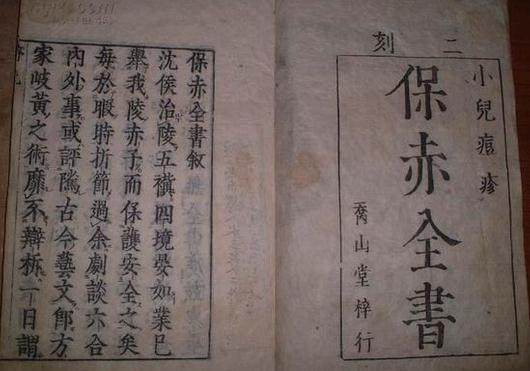 二刻
小兒痘疹
保赤全書
喬山堂梓行
保赤全書敘
沈侯治陵五禩四境晏如業已
舉我陵赤子而保護安全之矣
每於暇時折節過余劇談六合
內外事或評隲古今藝文即方
家岐黃之術靡不辯析一日謂